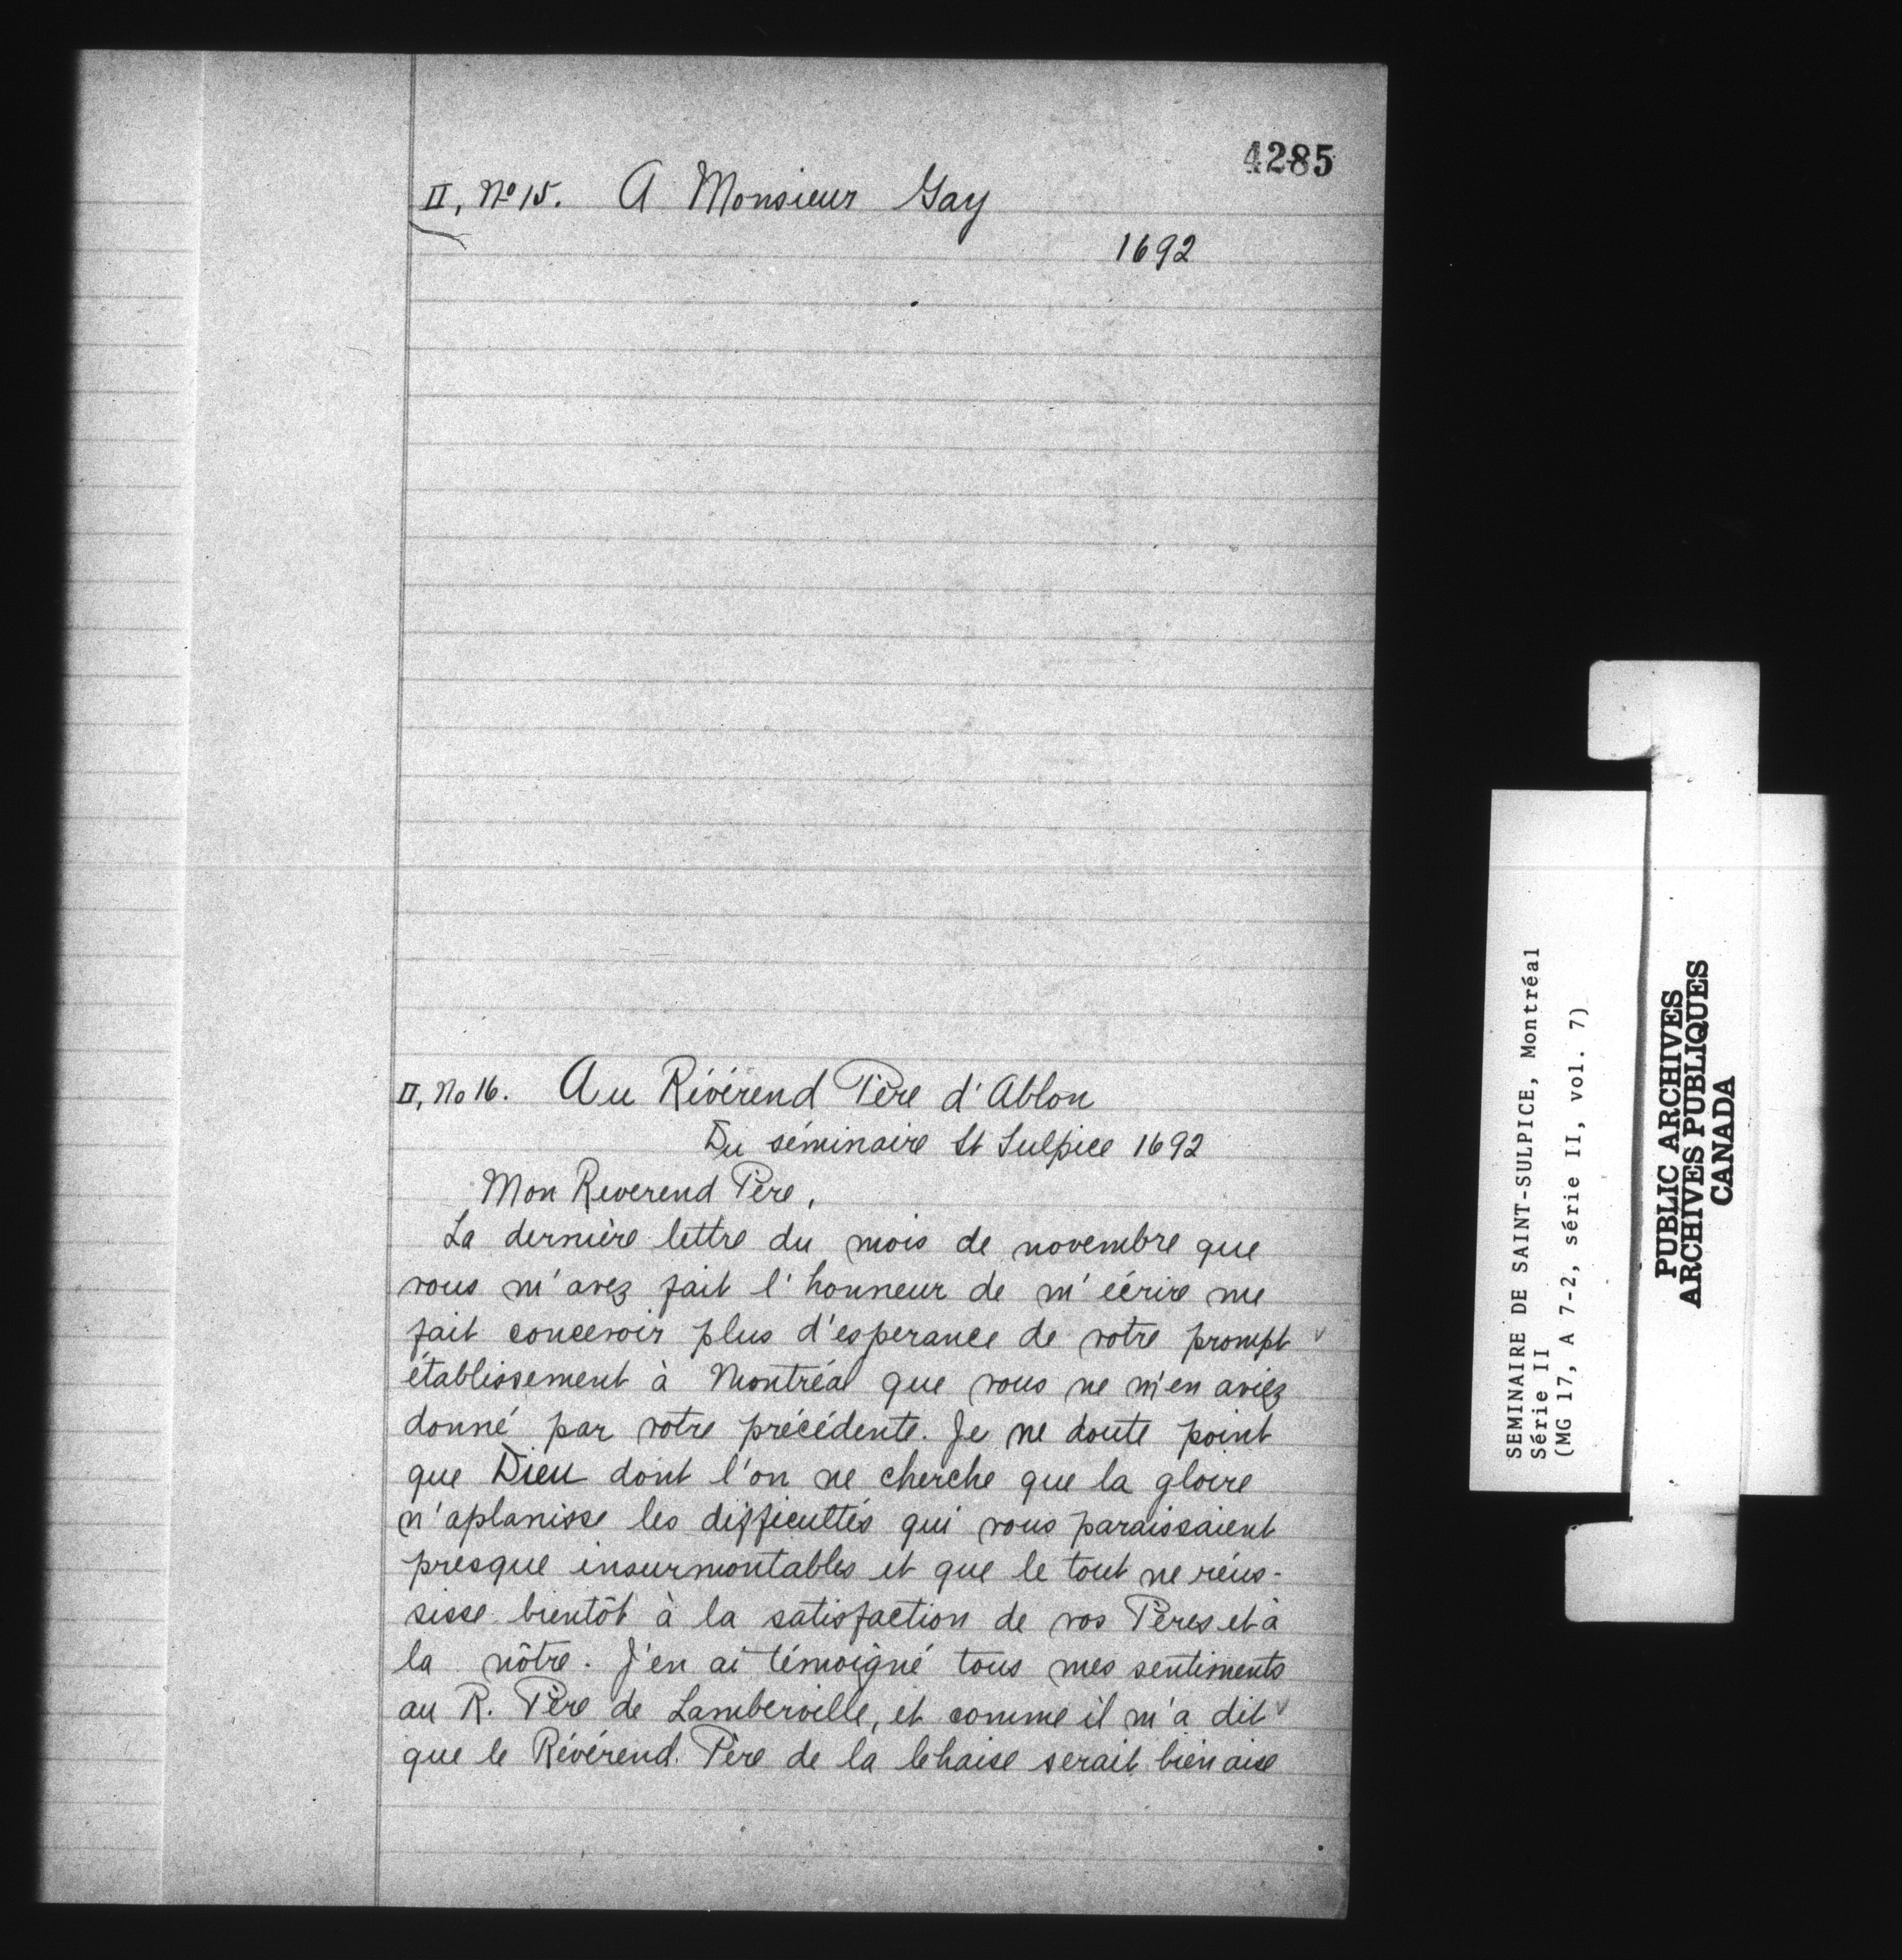 4285
II, No 15. A Monsieur Gay
1692
II, No 16. Au Révérend Père d'Ablon
Du séminaire St Sulpice 1692
Mon Reverend Père,
La dernière lettre du mois de novembre que
vous m'avez fait l'honneur de m'écrire me
fait concevoir plus d'esperance de votre prompt
établissement à Montréal que vous ne m'en aviez
donné par votre précédente. Je ne doute point
que Dieu dont l'on ne cherche que la gloire
n'aplanisse les difficultés qui vous paraissaient
presque insurmontables et que le tout ne réus-
sisse bientôt à la satisfaction de vos Pères et à
la nôtre. J'en ai témoigné tous mes sentiments
au R. Père de Lamberville, et comme il m'a dit
que le Révérend Père de la Chaise serait bien aise
SEMINAIRE DE SAINT-SULPICE, Montréal
Série II
(MG 17, A 7-2, série II, vol. 7)
PUBLIC ARCHIVES
ARCHIVES PUBLIQUES
CANADA